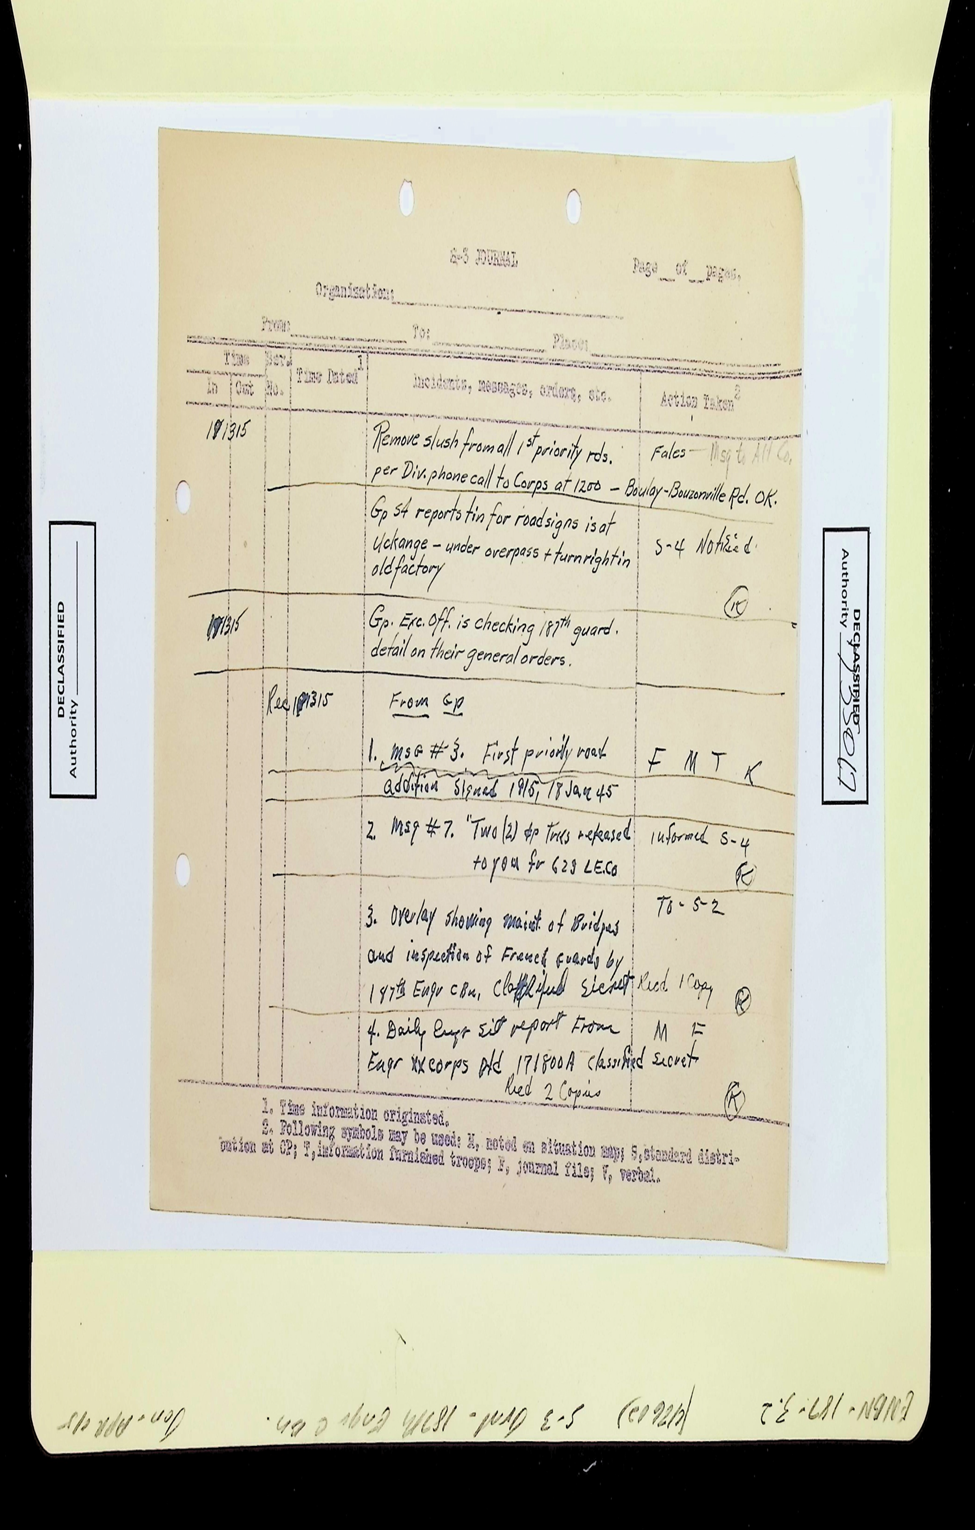 S-3 JOURNAL
Page__of__pages.
Organization:
From: To: Place:
Time Ser. Time Dated1 Incidents, messages, orders, etc. Action Taken2
In Out No.
Remove slush from all 1st priority rds. Fales - Msg to All Co.
per Div. phone call to Corps at 1200 - Boulay-Bouzonville Rd. OK.
Gp S4 reports tin for road signs is at
Uckange - under overpass + turn right in S-4 Notified.
old factory
K
Gp. Exc. Off. is checking 187th guard.
detail on their general orders.
Rec 1315 From Gp
1. Msg # 3. First priority road F M T K
addition Signed 1815, 18 Jan 45
2. Msg # 7. "Two (2) dp trks released informed S-4
to you fr 623 L.E.Co K
3. Overlay showing maint of Bridges To - S-2
and inspection of French guards by
187th Engr C Bn, Classified Secret Recd 1 Copy K
4. Daily Engr Sit report From M F
Engr XX corps dtd 171800A classified Secret
Recd 2 Copies K
1. Time information originated.
2. Following symbols may be used: M, noted on situation map; S, standard distri-
bution at CP; T, information furnished troops; F, journal file; V, verbal.
DECLASSIFIED
Authority
DECLASSIFIED
Authority
ENBN-187-3.2 (42602) S-3 Jrnl - 187th Engr C Bn. Jan-Apr 45